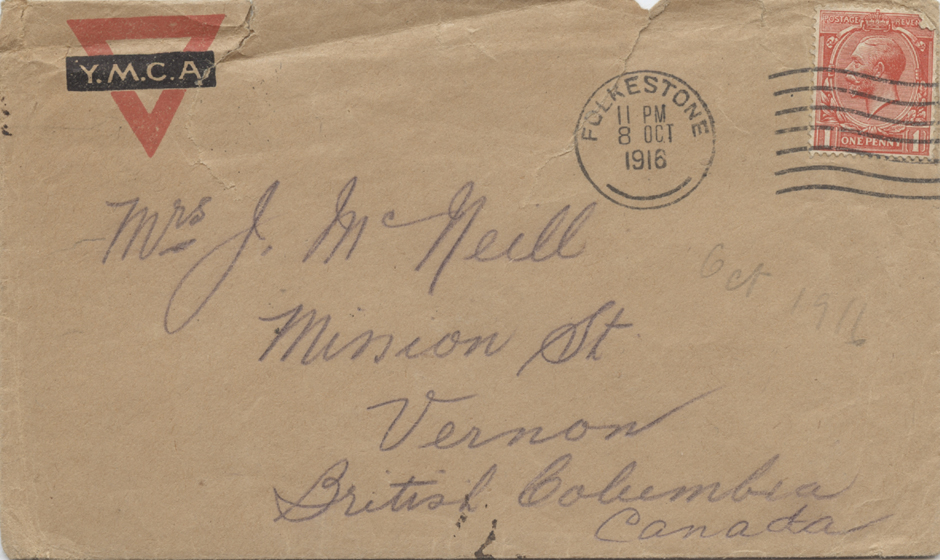 Y.M.C.A
POSTAGE REVENUE
1 ONE PENNY 1
FOLKESTONE
11 PM
8 OCT
1916
Mrs J. Mc Neill
Oct 1916
Mission St
Vernon
British Columbia
Canada